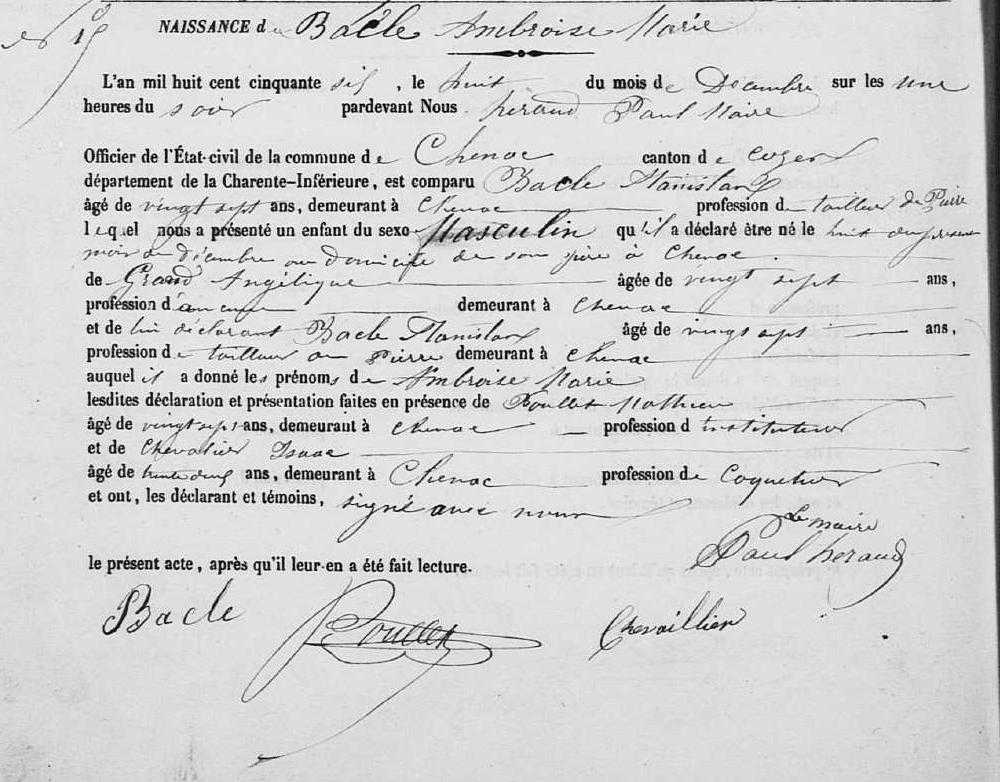 19
NAISSANCE de Bacle Ambroise Marie
L'an mil huit cent cinquante six, le huit du mois de Décembre sur les une
heures du soir pardevant Nous heraud Paul Maire
Officier de l'État-civil de la commune de Chenac canton de Cozes
département de la Charente-Inférieure, est comparu Bacle Stanislas
âgé de vingt sept ans, demeurant à Chenac profession de tailleur de Pierre
lequel nous a présenté un enfant du sexe Masculin qu'il a déclaré être né le huit du présent
mois de décembre au domicile de son père à Chenac.
de Grand Angélique âgée de vingt sept ans,
profession d'aucune demeurant à Chenac
et de lui déclarant Bacle Stanislas âgé de vingt sept ans,
profession de tailleur de Pierre demeurant à Chenac
auquel il a donné les prénoms de Ambroise Marie
lesdites déclaration et présentation faites en présence de Poullet Mathieu
âgé de vingt sept ans, demeurant à Chenac profession d instituteur
et de Chevalier Isaac
âgé de trente deux ans, demeurant à Chenac profession de Coquetier
et ont, les déclarant et témoins, signé avec nous
le présent acte, après qu'il leur en a été fait lecture.
Le maire
Paul heraud
Bacle Poullet Chevaillier